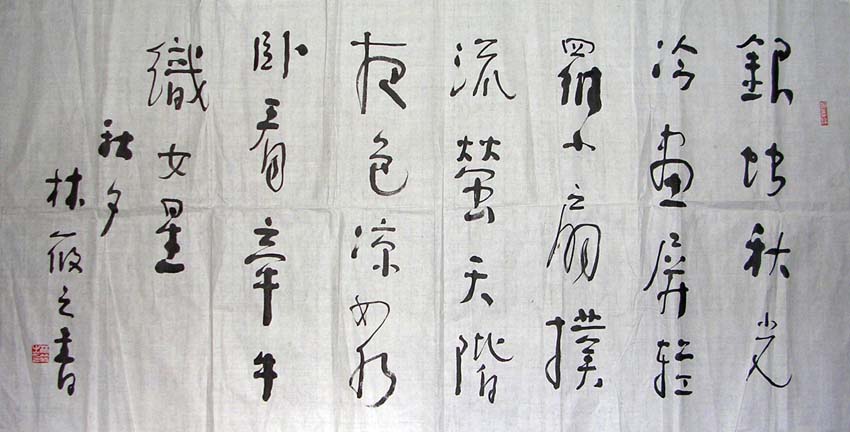 銀燭秋光
冷畫屏輕
羅小扇撲
流螢天階
夜色凉如水
臥看牽牛
織女星
秋夕
林筱之書